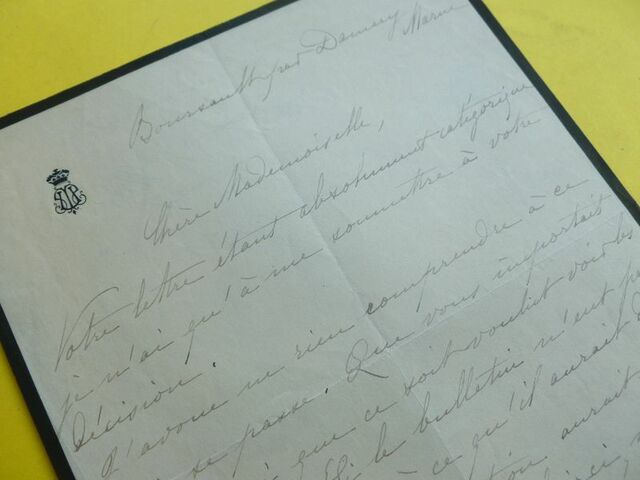 Boursault par Damery
Marne
Chère Mademoiselle,
Votre lettre étant absolument catégorique
je n'ai qu'à me soumettre à votre
décision.
J'avoue ne rien comprendre à ce
se passe. Que vous importait
que ce soit voulut voir les
Si le bulletin n'eut
à ce qu'il aurait
aurait